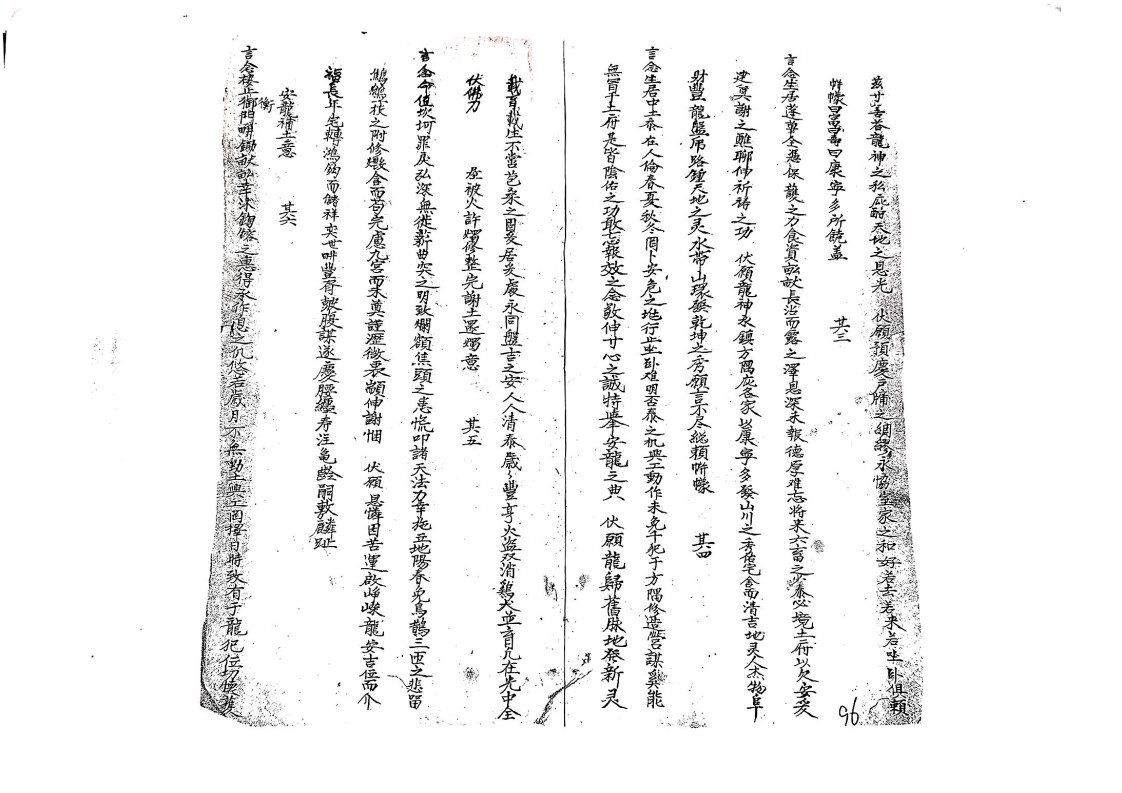 茲寸善荅龍神之私庇酧天地之恩光　伏願預慶戸牖之綢繆永協室家之和好若去若来若坐卧俱頼
帡幪曰富曰壽曰康寧多所饒益　其三
言念生居蓬蓽全憑保護之力食資畝畝長沾雨露之澤恩深未報德厚难忘将来六畜之少泰必境土府以欠安爰
建奠謝之醮聊伸祈祷之功　伏願龍神永鎮方隅庇各家以康寧多發山川之秀佑宅舍而清吉地灵人杰物阜
財豐龍盤馬路鍾天地之灵水帶山環發乾坤之秀願言不尽総頼帡幪　其四
言念生居中土泰在人倫春夏秋冬罔卜安危之地行止坐卧难明否泰之机興工動作未免干犯于方隅修造营謀奚能
無冒于土府是皆陰佑之功敢忘報效之念敬伸寸心之誠特舉安龍之典　伏願龍歸舊脉地發新灵
載百載生不當苞桑之固爰居爰處永同盤吉之安人人清泰歲々豐亨火盗双消鷄犬並育凡在光中全
伏佛力　屋被火許燭修整完謝土還燭意　其五
言念命值坎坷罪戾弘深無徙薪曲突之明致爛額焦頭之患慌叩諸天法力幸拖立地陽春免鳥鵲三匝之悲留
鷦鷯一枝之附修繳舍而苟完慮九宮而未奠謹瀝微衷顓伸謝悃　伏願恩憐困苦運啟峥嶸龍安吉位而介
福長年宅轉鴻鈞而儲祥奕世畊豐胥皷腹謀遂慶腰纏寿注龜齡嗣敷麟趾
安龍補土意　其六
言念棲止衡門畊鋤畝畝幸沐鈞鎔之惠得永作息之仇悠若歲月不無動土興工罔擇日時致有于龍犯位切懷
96